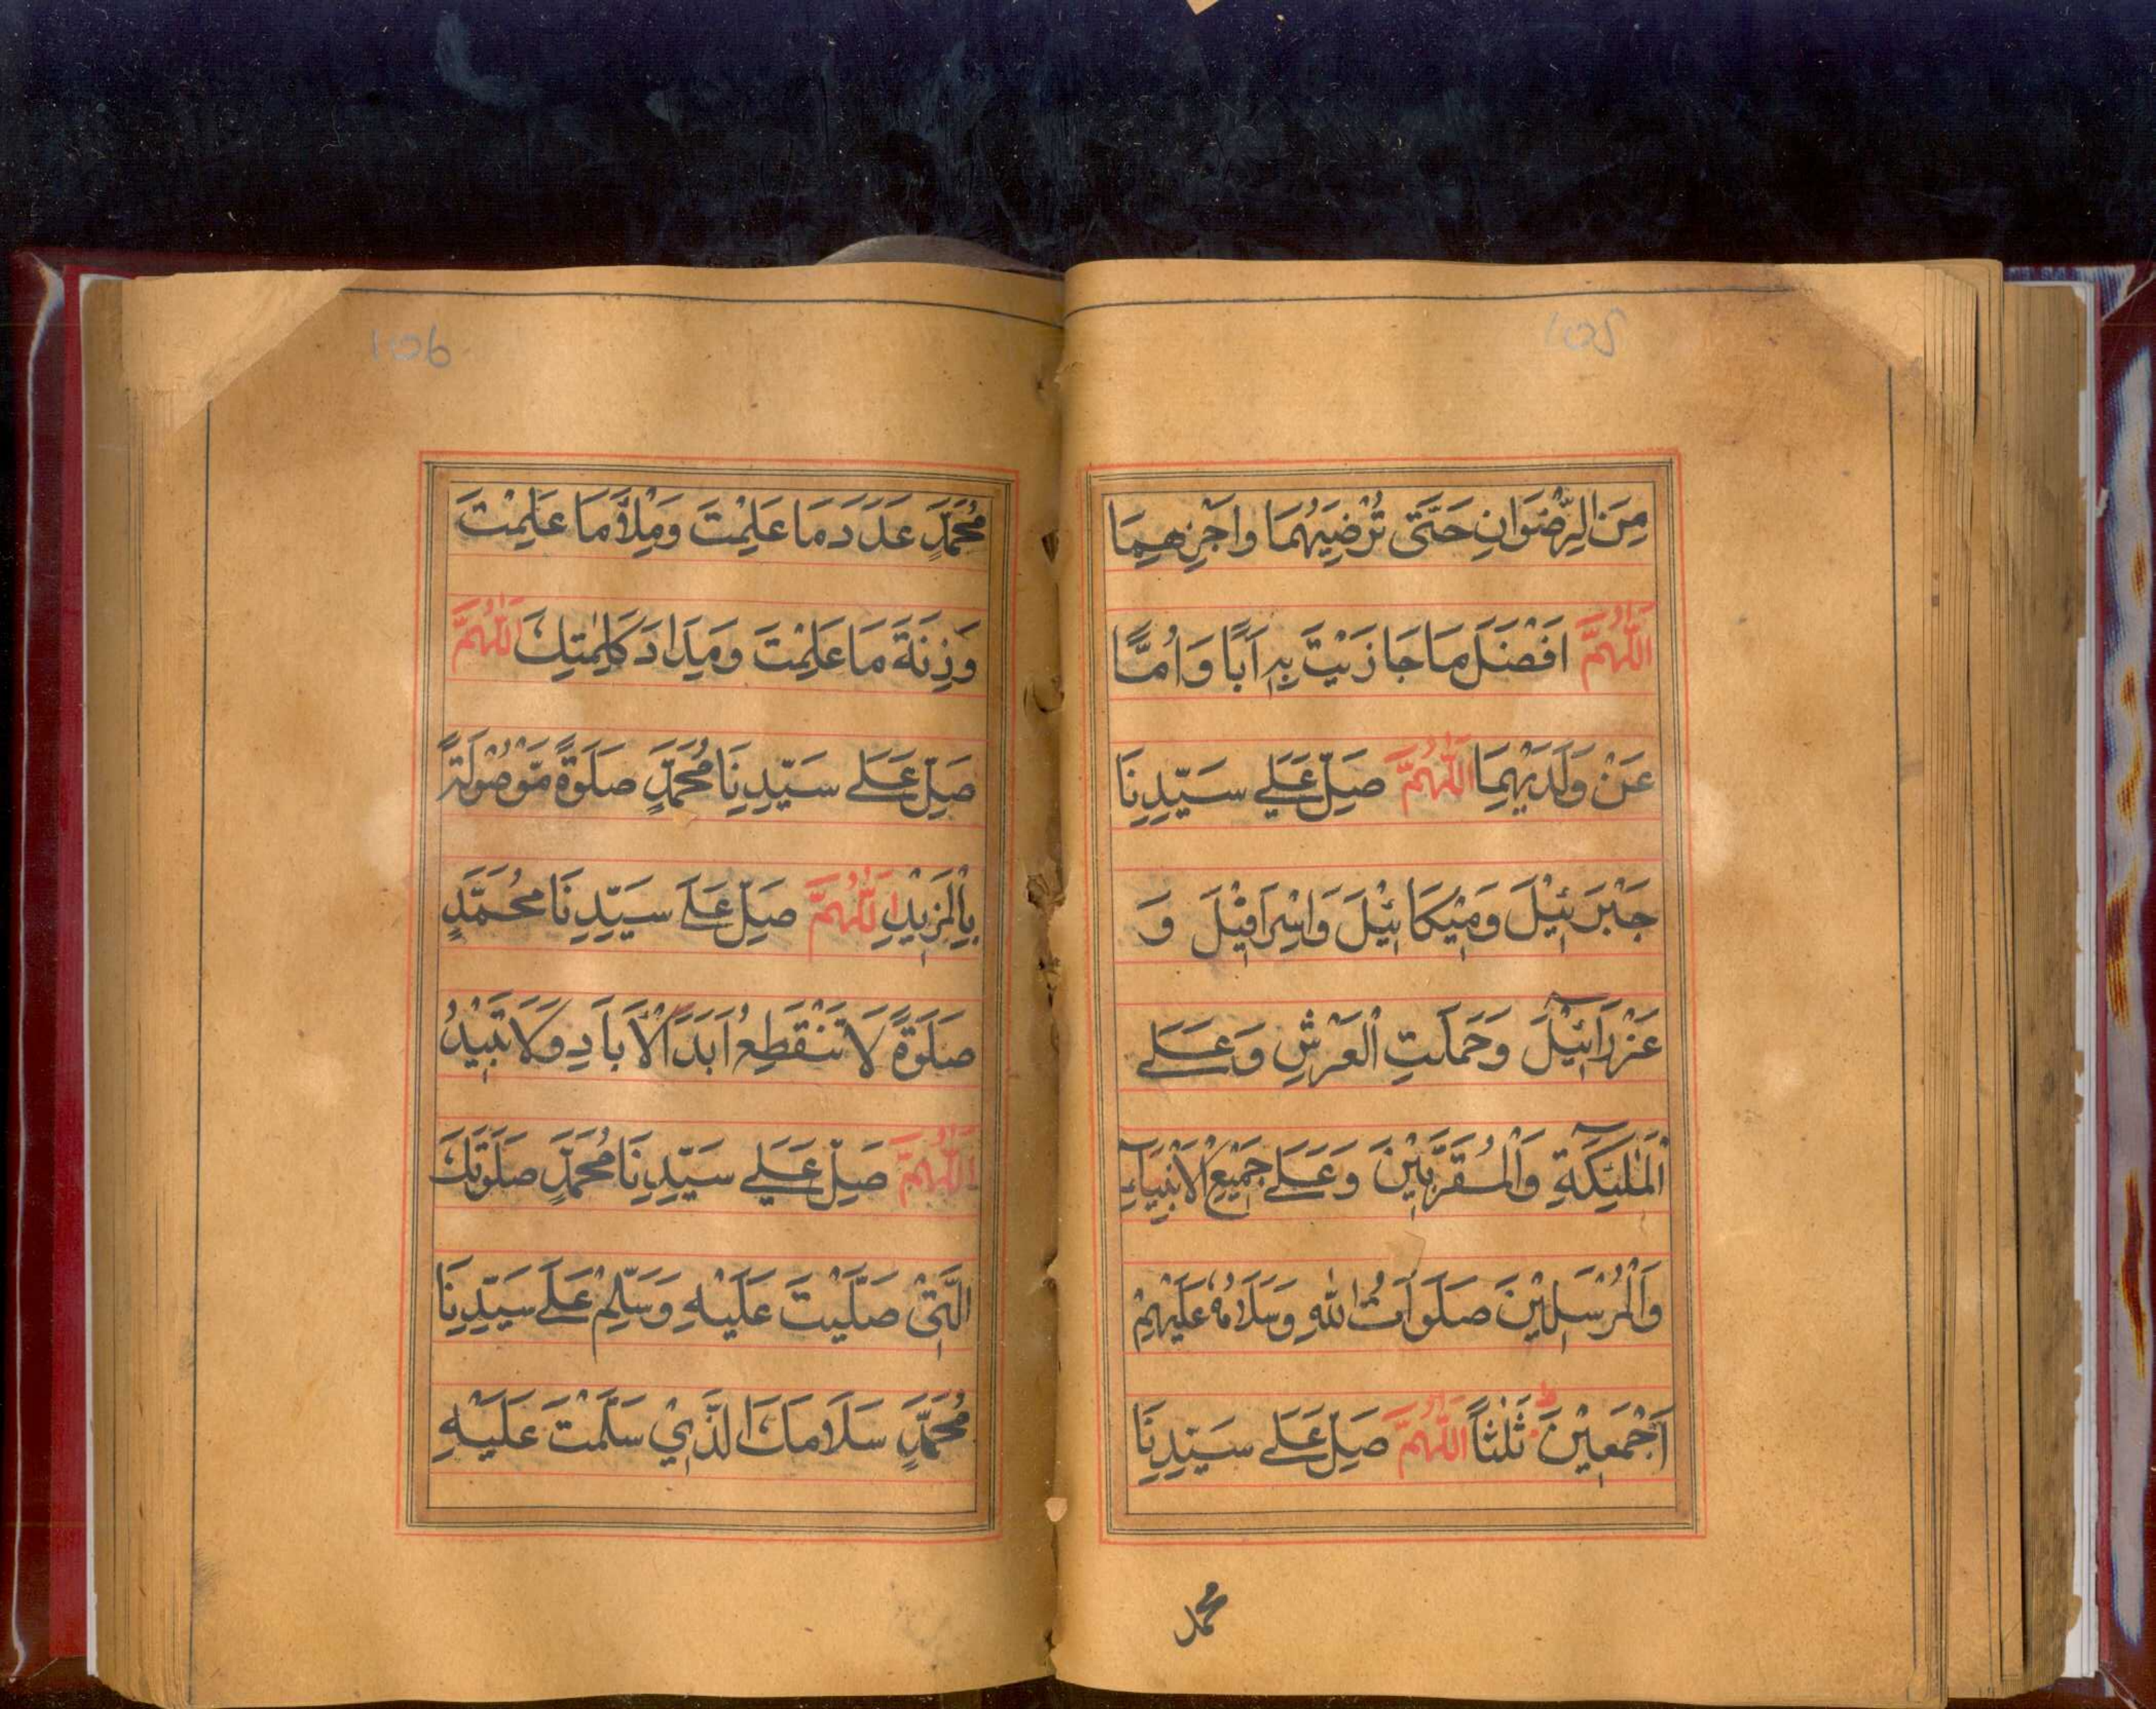 105
مِنَ الرِّضْوَانِ حَتَّى تُرْضِيَهُمَا وَاجْزِهِمَا
اَللّٰهُمَّ اَفْضَلَ مَا جَازَيْتَ بِهٖ اَبًا وَاُمًّا
عَنْ وَلَدَيْهِمَا اَللّٰهُمَّ صَلِّ عَلٰے سَيِّدِنَا
جَبْرَئِيْلَ وَمِيْكَائِيْلَ وَاِسْرَافِيْلَ وَ
عَزْرَآئِيْلَ وَحَمَلَتِ الْعَرْشِ وَعَلَے
الْمَلٰٓئِكَةِ وَالْمُقَرَّبِيْنَ وَعَلَے جَمِيْعِ الْاَنْبِيَآءِ
وَالْمُرْسَلِيْنَ صَلَوَاتُ اللّٰهِ وَسَلَامُهٗ عَلَيْهِمْ
اَجْمَعِيْنَ ثَلٰثًا اَللّٰهُمَّ صَلِّ عَلَے سَيِّدِنَا
محمد
106
مُحَمَّدٍ عَدَدَ مَا عَلِمْتَ وَمِلْأَ مَا عَلِمْتَ
وَزِنَةَ مَا عَلِمْتَ وَمِدَادَ كَلِمٰتِكَ اَللّٰهُمَّ
صَلِّ عَلَے سَيِّدِنَا مُحَمَّدٍ صَلٰوةً مَّوْصُوْلَةً
بِالْمَزِيْدِ اَللّٰهُمَّ صَلِّ عَلَے سَيِّدِنَا مُحَمَّدٍ
صَلٰوةً لَا تَنْقَطِعُ اَبَدَ الْاٰبَادِ وَلَا تَبِيْدُ
اَللّٰهُمَّ صَلِّ عَلَے سَيِّدِنَا مُحَمَّدٍ صَلٰوتَكَ
الَّتِيْ صَلَّيْتَ عَلَيْهِ وَسَلِّمْ عَلَے سَيِّدِنَا
مُحَمَّدٍ سَلَامَكَ الَّذِيْ سَلَّمْتَ عَلَيْهِ